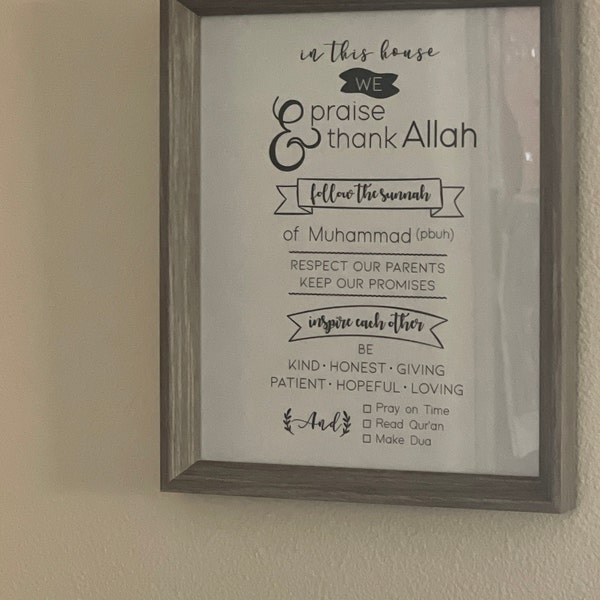 in this house
WE
praise
& thank Allah
follow the sunnah
of Muhammad (pbuh)
RESPECT OUR PARENTS
KEEP OUR PROMISES
inspire each other
BE
KIND · HONEST · GIVING
PATIENT · HOPEFUL · LOVING
And
Pray on Time
Read Qur'an
Make Dua